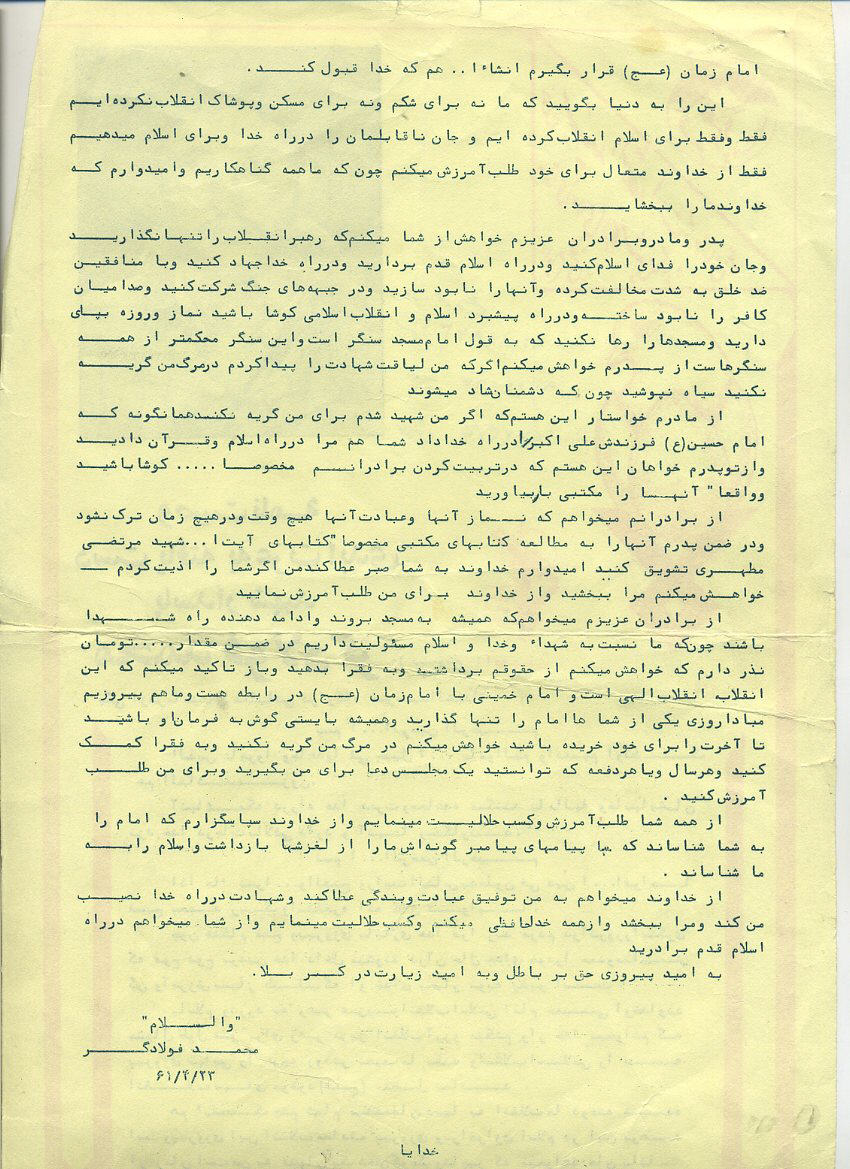 امام زمان (عج) قرار بگیرم انشاءا.. هم که خدا قبول کند.
این را به دنیا بگویید که ما نه برای شکم ونه برای مسکن وپوشاک انقلاب نکرده ایم
فقط وفقط برای اسلام انقلاب کرده ایم و جان ناقابلمان را درراه خدا وبرای اسلام میدهیم
فقط از خداوند متعال برای خود طلب آمرزش میکنم چون که ماهمه گناهکاریم وامیدوارم که
خداوندمارا ببخشاید.
پدر ومادروبرادران عزیزم خواهش از شما میکنم که رهبرانقلاب را تنهانگذارید
وجان خودرا فدای اسلام کنید ودرراه اسلام قدم بردارید ودرراه خداجهاد کنید وبا منافقین
ضد خلق به شدت مخالفت کرده وآنهارا نابود سازید ودر جبهه های جنگ شرکت کنید وصدامیان
کافر را نابود ساخته ودرراه پیشبرد اسلام و انقلاب اسلامی کوشا باشید نماز وروزه بپای
دارید ومسجدهارا رها نکنید که به قول امام مسجد سنگر است واین سنگر محکمتر از همه
سنگرهاست از پدرم خواهش میکنم اگرکه من لیاقت شهادت را پیداکردم درمرگ من گریه
نکنید سیاه نپوشید چون که دشمنان شاد میشوند
از مادرم خواستار این هستم که اگر من شهید شدم برای من گریه نکنندهمانگونه که
امام حسین(ع) فرزندش علی اکبررا درراه خداداد شما هم مرا درراه اسلام وقرآن دادید
وازتوپدرم خواهان این هستم که درتربیت کردن برادرانم مخصوصا ..... کوشاباشید
وواقعا" آنها را مکتبی باربیاورید
از برادرانم میخواهم که نماز آنها وعبادت آنها هیچ وقت ودرهیچ زمان ترک نشود
ودر ضمن پدرم آنهارا به مطالعه کتابهای مکتبی مخصوصا "کتابهای آیت ا... شهید مرتضی
مطهری تشویق کنید امیدوارم خداوند به شما صبر عطاکندمن اگرشما را اذیت کردم
خواهش میکنم مرا ببخشید واز خداوند برای من طلب آمرزش نمایید
از برادران عزیزم میخواهم که همیشه به مسجد بروند وادامه دهنده راه شهدا
باشند چون که ما نسبت به شهداء وخدا و اسلام مسئولیت داریم در ضمن مقدار.....تومان
نذر دارم که خواهش میکنم از حقوقم برداشته وبه فقرا بدهید وباز تاکید میکنم که این
انقلاب انقلاب الهی است و امام خمینی با امام زمان (عج) در رابطه هست وماهم پیروزیم
مباداروزی یکی از شما هاامام را تنها گذارید وهمیشه بایستی گوش به فرمان او باشید
تا آخرت رابرای خود خریده باشید خواهش میکنم در مرگ من گریه نکنید وبه فقرا کمک
کنید وهرسال ویاهردفعه که توانستید یک مجلس دعا برای من بگیرید وبرای من طلب
آمرزش کنید .
از همه شما طلب آمرزش وکسب حلالیت مینمایم واز خداوند سپاسگزارم که امام را
به شما شناساند که با پیامهای پیامبر گونه اش مارا از لغزشها بازداشت واسلام رابه
ما شناساند .
از خداوند میخواهم به من توفیق عبادت وبندگی عطاکند وشهادت درراه خدا نصیب
من کند ومرا ببخشد وازهمه خداحافظی میکنم وکسب حلالیت مینمایم واز شما میخواهم درراه
اسلام قدم بردارید
به امید پیروزی حق بر باطل وبه امید زیارت در کربلا.
"والسلام"
محمد فولادگر
۶۱/۴/۲۳
خدایا